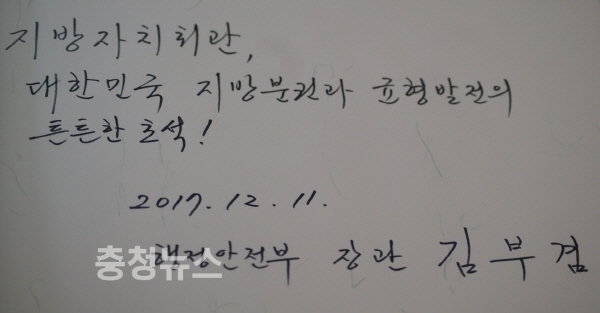 지방자치회관,
대한민국 지방분권과 균형발전의
튼튼한 초석!
2017. 12. 11.
행정안전부 장관 김부겸
충청뉴스